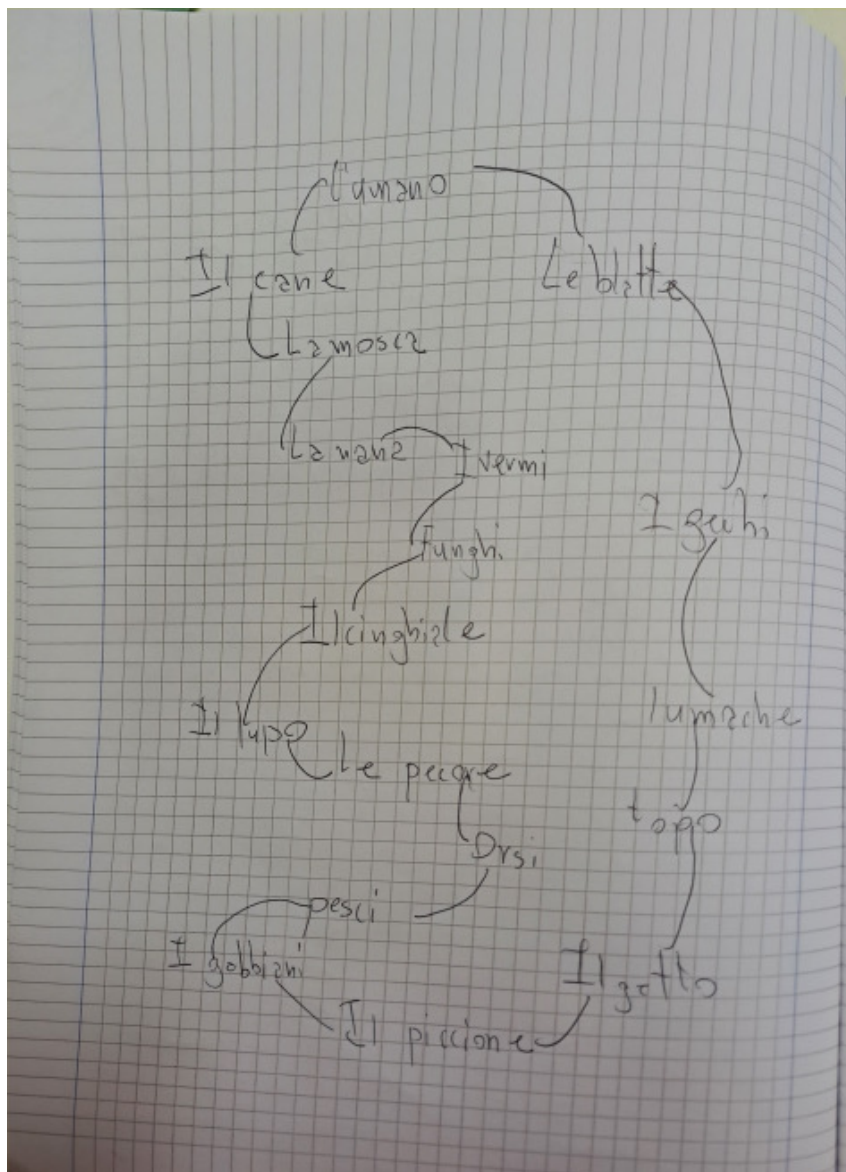 l'umano
Il cane
Le blatte
La mosca
La rana
I vermi
Funghi
I gechi
Il cinghiale
Il lupo
lumache
Le pecore
topo
Orsi
pesci
I gobbiani
Il gatto
Il piccione